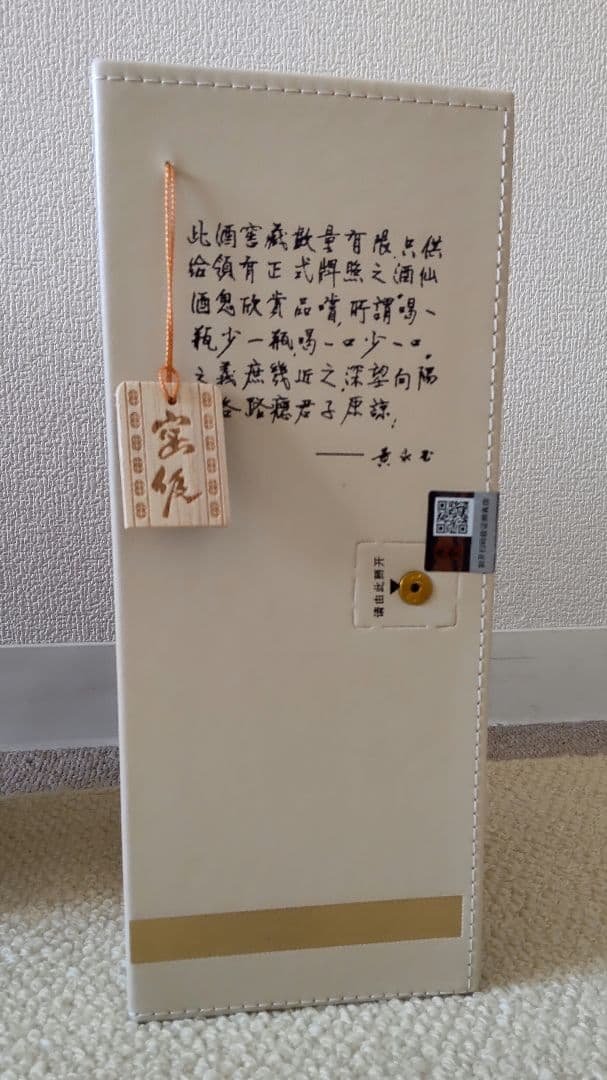 此酒窖藏數量有限,只供
給領有正式牌照之酒仙
酒鬼欣賞品嚐,所謂喝一
瓶少一瓶,喝一口少一口,
之義庶幾近之,深望向隅
各路癮君子原諒,
——黃永玉
请由此撕开